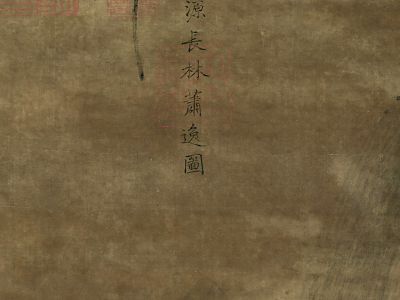 源長林蕭逸圖